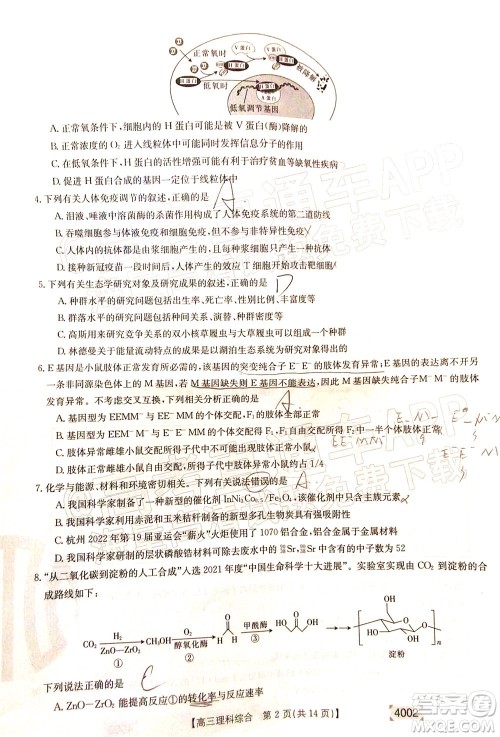 正常氧时
V蛋白
H蛋白
被降解
低氧时
低氧调节基因
A. 正常氧条件下，细胞内的 H 蛋白可能是被 V 蛋白(酶)降解的
B. 正常浓度的 O₂ 进入线粒体中可能同时发挥信息分子的作用
C. 抑制V蛋白的基因表达可能有利于治疗贫血等缺氧性疾病
D. 促进 H 蛋白合成的基因一定位于线粒体中
4. 下列有关人体免疫的叙述，正确的是 A
A. 泪液、唾液中溶菌酶的杀菌作用属于人体免疫系统的第二道防线
B. 吞噬细胞参与体液免疫和细胞免疫，但不参与非特异性免疫
C. 人体内的抗体都是由浆细胞产生的，而浆细胞都是由B细胞产生的
D. 接种新冠疫苗一段时间后，机体产生的效应 T 细胞和抗体都明显增加
5. 下列有关生态学研究对象及研究成果的叙述，正确的是 D
A. 种群水平的研究问题包括出生率、死亡率、性别比例、丰富度等
B. 群落水平的研究问题包括优势种、种间关系、演替和年龄结构等
C. 高斯用来研究竞争的双小核草履虫与大草履虫之间不存在生殖隔离
D. 林德曼关于能量流动的研究成果是以湖泊生态系统为研究对象的
6. E 基因是小鼠肢体正常发育所必需的，该基因的突变纯合子 E⁻E⁻的肢体发育异常；E 基因的表达离不开另
一条非同源染色体上的 M 基因，若 M 基因缺失则 E 基因不能表达，因此 M 基因缺失纯合子 M⁻M⁻的肢体发育
异常。不考虑交叉互换，下列叙述正确的是 A
A. 基因型为 EEM⁻M⁻与 E⁻E⁻MM 的个体交配，F₁ 的肢体正常
B. 基因型为 EEMM⁻与 E⁻E⁻MM 的个体交配，F₁ 的肢体发育异常
C. 肢体正常雌雄小鼠交配所得子代中不可能出现肢体发育异常小鼠
D. 肢体异常雌雄小鼠交配所得子代中肢体异常小鼠占 1/4
7. 化学与能源、材料和环境密切相关。下列说法错误的是
A. 我国科学家制备了一种新型的催化剂 InNi₃C₀.₅/Fe₃O₄，该催化剂中只含主族元素
B. 我国科学家利用赤泥和玉米秸秆制备的陶粒，可用于废水处理
C. 杭州 2022 年第 19 届亚运会“薪火”火炬使用了 1070 铝合金，铝合金属于金属材料
8. “从二氧化碳到淀粉的人工合成”入选 2021 年度“中国生命科学十大进展”。实验室实现由 CO₂ 到淀粉的合
成路线如下：
CO₂ H₂ ZnO—ZrO₂ ① CH₃OH O₂ 醇氧化酶 ② 甲酰酶 ③ 淀粉
下列说法正确的是 C
A. ZnO—ZrO₂ 能提高反应①的转化率与反应速率
【高三理科综合 第 2 页(共 14 页)】 4002